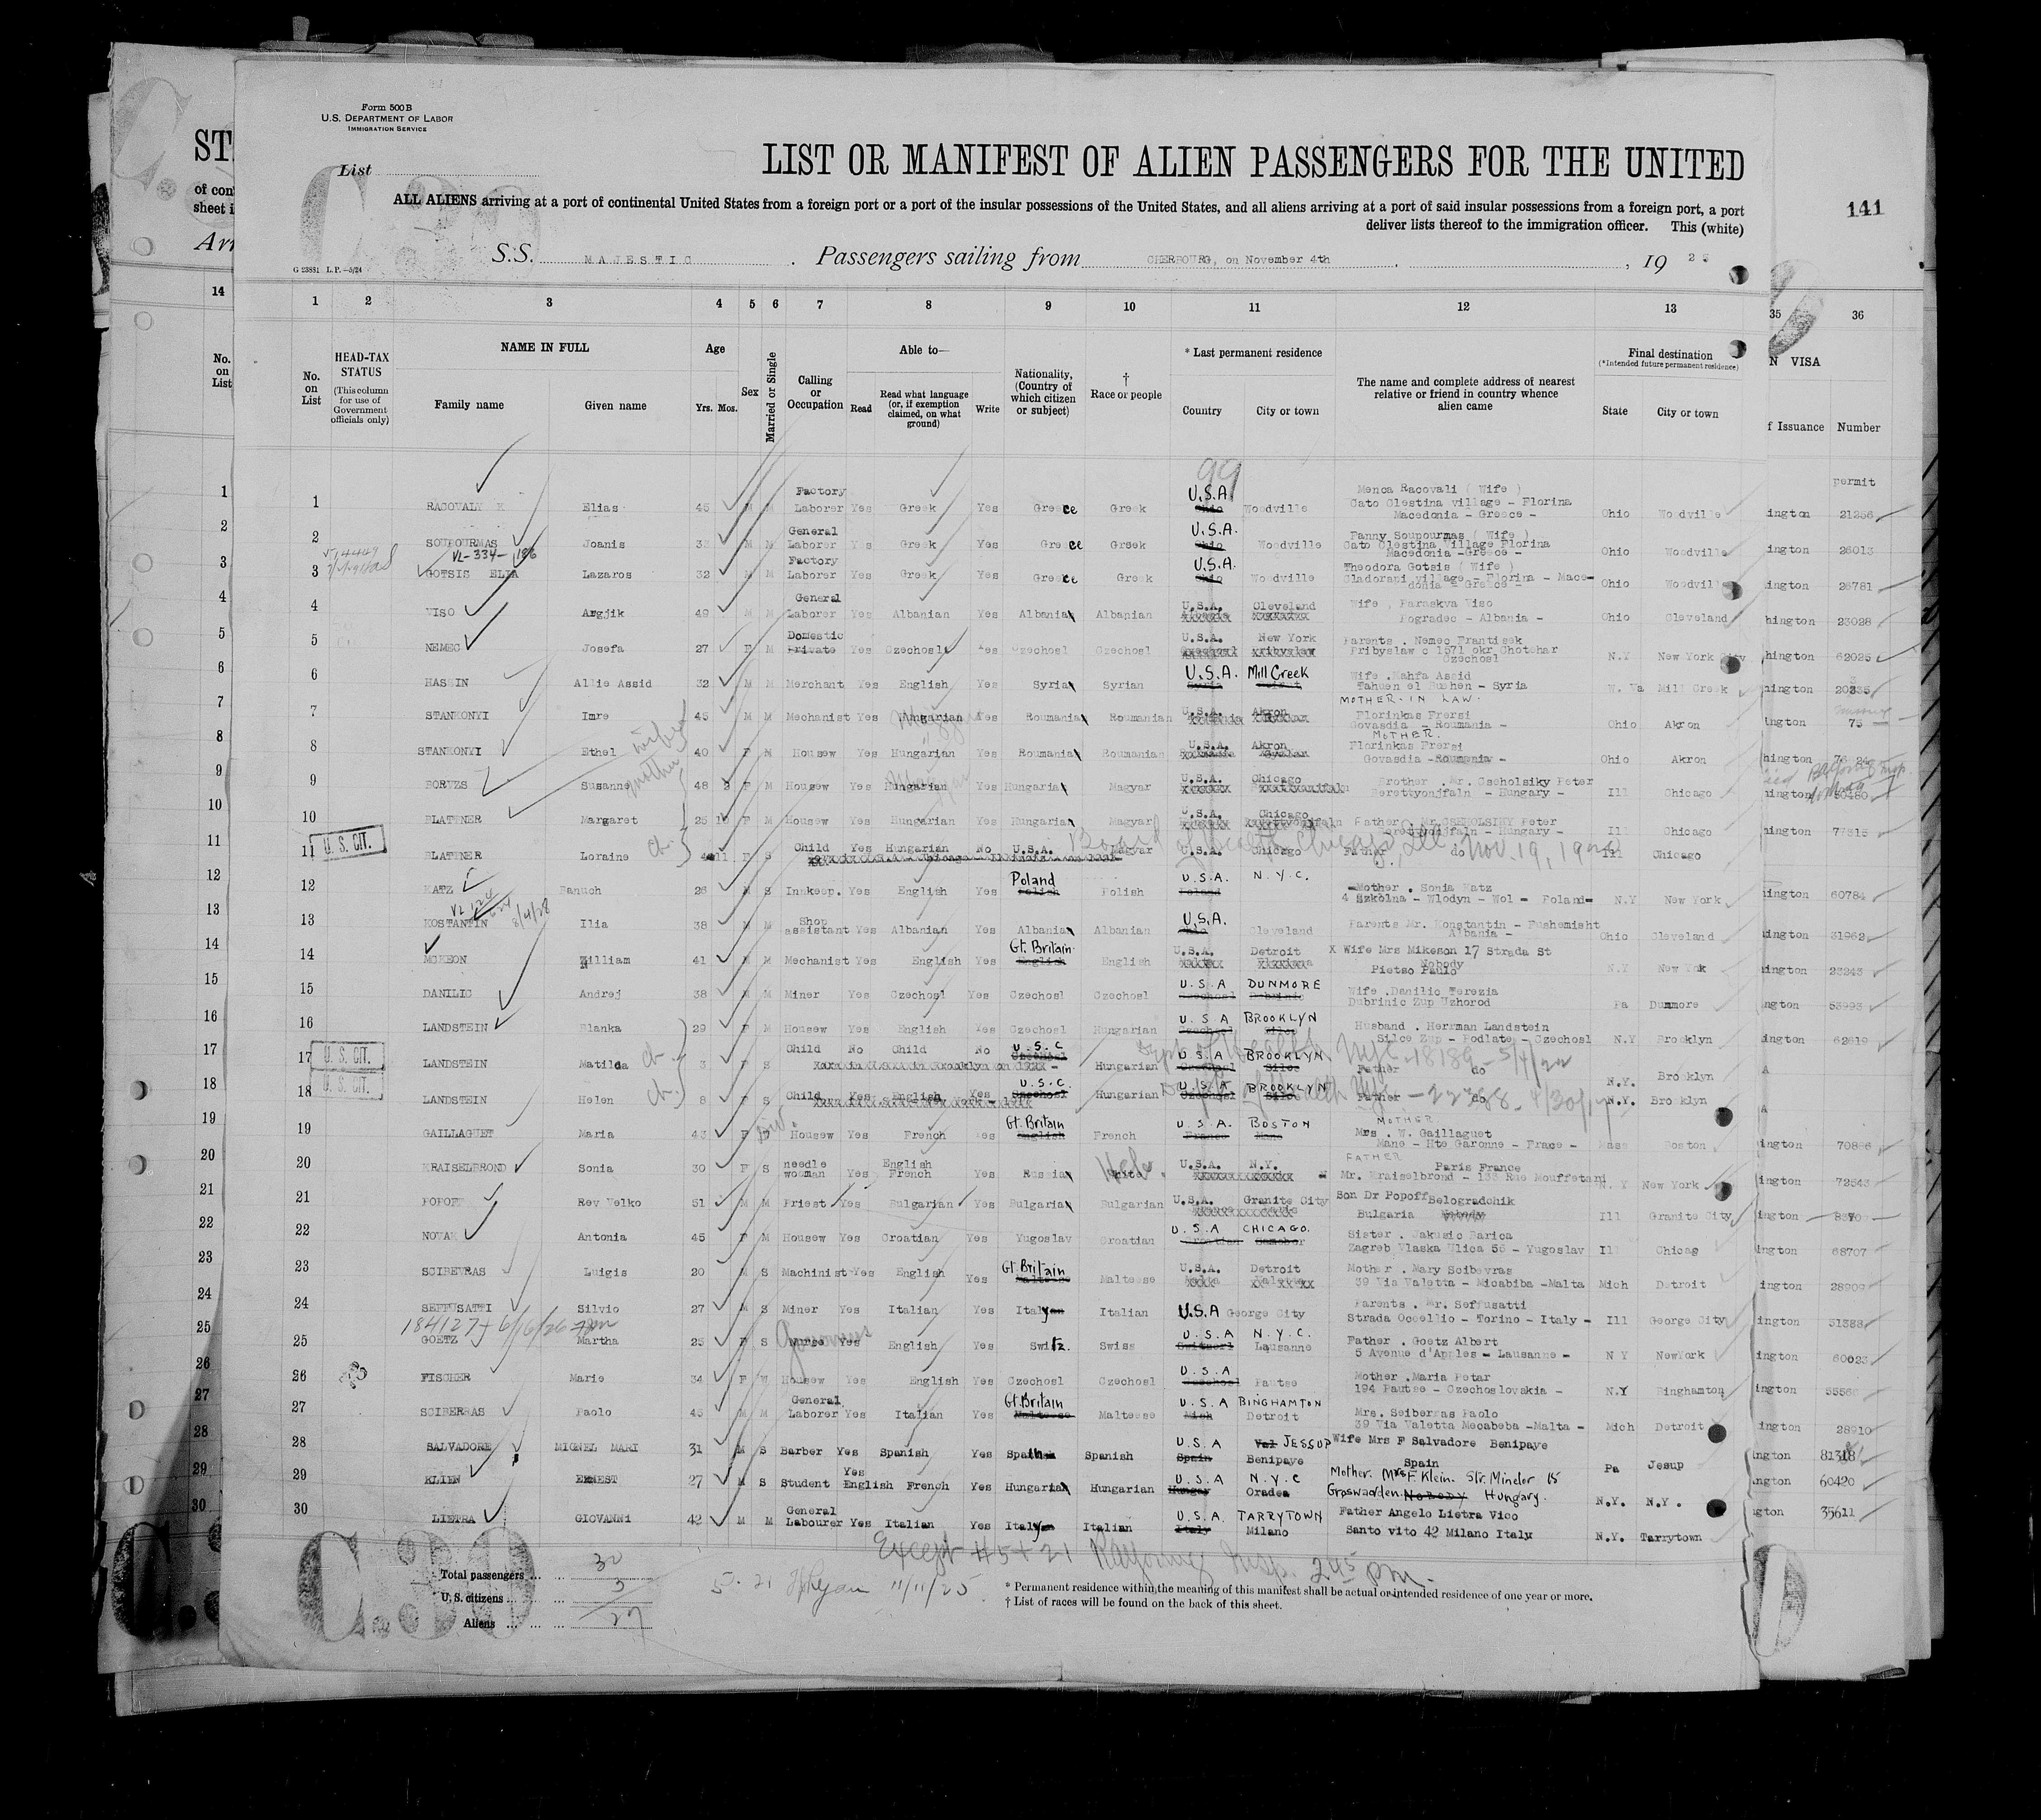 Form 500 B
U.S. DEPARTMENT OF LABOR
IMMIGRATION SERVICE
List
LIST OR MANIFEST OF ALIEN PASSENGERS FOR THE UNITED
ALL ALIENS arriving at a port of continental United States from a foreign port or a port of the insular possessions of the United States, and all aliens arriving at a port of said insular possessions from a foreign port, a port
deliver lists thereof to the immigration officer. This (white)
141
S.S. MAJESTIC. Passengers sailing from CHERBOURG, on November 4th, 19 25
1 2 3 4 5 6 7 8 9 10 11 12 13 35 36
No. on List
HEAD-TAX STATUS
(This column for use of Government officials only)
NAME IN FULL
Family name
Given name
Age
Yrs. Mos.
Sex
Married or Single
Calling or Occupation
Able to—
Read
Read what language (or, if exemption claimed, on what ground)
Write
Nationality, (Country of which citizen or subject)
† Race or people
* Last permanent residence
Country
City or town
The name and complete address of nearest relative or friend in country whence alien came
Final destination
(*Intended future permanent residence)
State
City or town
N VISA
f Issuance
Number
99
permit
1 RACOVALY Elias 45 M M Factory Laborer Yes Greek Yes Greece Greek U.S.A. Ohio Woodville Menca Racovali ( Wife ) Cato Clestina village - Florina Macedonia - Greece - Ohio Woodville ington 21256
2 SOUPOURMAS Joanis 33 M M General Laborer Yes Greek Yes Greece Greek U.S.A. Ohio Woodville Fanny Soupourmas ( Wife ) Cato Clestina Village Florina Macedonia -Greece - Ohio Woodville ington 26013
VL-334-186
3 GOTSIS ELIA Lazaros 32 M M Factory Laborer Yes Greek Yes Greece Greek U.S.A. Ohio Woodville Theodora Gotsis ( Wife ) Cladorapi village - Florina - Macedonia - Greece - Ohio Woodvill ington 26781
4 VISO Argjik 49 M M General Laborer Yes Albanian Yes Albania Albanian U.S.A. Cleveland Wife . Paraskva Viso Pogradec - Albania - Ohio Cleveland hington 23028
5 NEMEC Josefa 27 F M Domestic Private Yes Czechosl Yes Czechosl Czechosl U.S.A. New York Parents . Nemec Frantisek Pribyslaw c 1571 okr Chotohar Czechosl N.Y New York City hington 62025
6 HASSIN Allie Assid 32 M M Merchant Yes English Yes Syria Syrian U.S.A. Mill Creek Wife . Kahfa Assid Tahuen el - Syria W. Va Mill Creek hington
7 STANKONYI Imre 45 M M Mechanist Yes Hungarian Yes Roumania Roumanian U.S.A. Akron MOTHER-IN LAW. Florinkas Frersi Govasdia - Roumania - Ohio Akron ington 75
8 STANKONYI Ethel 40 F M Housew Yes Hungarian Yes Roumania Roumanian U.S.A. Akron MOTHER. Florinkas Frersi Govasdia -Roumania - Ohio Akron hington
9 BORUZS Susanne 48 F M Housew Yes Hungarian Yes Hungaria Magyar U.S.A. Chicago Brother . Mr. Cseholsiky Peter Berettyonjfaln - Hungary - Ill Chicago hington 80480
10 BLATTNER Margaret 25 F M Housew Yes Hungarian Yes Hungaria Magyar U.S.A. Chicago Father . Mr CSEHOLSIKY Peter Berettyonjfaln - Hungary - Ill Chicago hington 77815
11 U. S. CIT. BLATTNER Loraine ch. F S Child Yes Hungarian No U.S.A. Magyar U.S.A. Chicago Father do Ill Chicago
Board of Health Chicago, Ill. Nov. 19, 1920
12 KATZ Banuch 26 M S Innkeep. Yes English Yes Poland Polish Polish U.S.A. N.Y.C. Poland Mother . Sonia Katz 4 Szkolna - Wlodyn - Wol - Poland- N.Y New York hington 60784
13 KOSTANTIN Ilia 38 M M Shop assistant Yes Albanian Yes Albania Albanian U.S.A. Ohio Cleveland Parents Mr. Konstantin - Fushemisht Albania - Ohio Cleveland hington 31962
14 MCKEON William 41 M M Mechanist Yes English Yes Gt. Britain English English U.S.A. Detroit X Wife Mrs Mikeson 17 Strada St Nobody Pietso Paulo N.Y New York hington 23243
15 DANILIC Andrej 38 M M Miner Yes Czechosl Yes Czechosl Czechosl U.S.A DUNMORE Czechosl Dubrinic Wife .Danilic Terezia Dubrinic Zup Uzhorod Pa Dunmore ngton 53993
16 LANDSTEIN Blanka 29 F M Housew Yes English Yes Czechosl Hungarian U.S.A BROOKLYN Czechosl Silce Husband . Herrman Landstein Silce Zup - Podlate - Czechosl N.Y Brooklyn hington 62619
17 U. S. CIT. LANDSTEIN Matilda ch. 3 F S Child No Child No U.S.C Czechosl Hungarian U.S.A BROOKLYN Czechosl Silce Father do N.Y. Brooklyn
Dept of Health NYC - 18189 - 5/4/22
18 U. S. CIT. LANDSTEIN Helen ch. 8 F S Child Yes English Yes U.S.C. Czechosl Hungarian U.S.A BROOKLYN Czechosl Silce Father do N.Y. Brooklyn
Dept of Health NYC - 22788 - 4/30/17
19 GAILLAGUET Maria 43 F Div. Housew Yes French Yes Gt. Britain English French U.S.A. BOSTON France Mane MOTHER Mrs . W. Gaillaguet Mane - Hte Garonne - Frace - Mass Boston ington 70886
20 KRAISELBROND Sonia 30 F S needle woman Yes English French Yes Russia Hebr. White U.S.A. N.Y. FATHER Paris France Mr. Kraiselbrond - 133 Rue Mouffetard N.Y New York ington 72543
21 POPOFF Rev Velko 51 M M Priest Yes Bulgarian Yes Bulgaria Bulgarian U.S.A. Granite City Son Dr Popoff Belogradchik Bulgaria Nobody Ill Granite City ington
22 NOVAK Antonia 45 F M Housew Yes Croatian Yes Yugoslav Croatian U.S.A CHICAGO. Croatian Samobor Sister . Jakusic Barica Zagreb Vlaska Ulica 56 - Yugoslav Ill Chicag ington 68707
23 SCIBEVRAS Luigis 20 M S Machinist Yes English Yes Gt. Britain Maltese Malteese U.S.A. Detroit Mother . Mary Scibevras 39 Via Valetta - Micabiba -Malta Mich Detroit ington 28909
24 SEFFUSATTI Silvio 27 M S Miner Yes Italian Yes Italy Italian U.S.A George City Parents . Mr. Seffusatti Strada Occellio - Torino - Italy - Ill George City ington 51388
184127 - 6/16/26
25 GOETZ Martha 25 F S Governess Nurse Yes English Yes Switz. Swiss U.S.A N.Y.C. Switzerl Lausanne Father . Goetz Albert 5 Avenue d'Apples - Lausanne - N Y NewYork ington 60023
26 FISCHER Marie 34 F W Housew Yes English Yes Czechosl Czechosl U.S.A Czechosl Pautse Mother .Maria Petar 194 Pautse - Czechoslovakia - N.Y Binghamton ington
27 SCIBERRAS Paolo 45 M M General Laborer Yes Italian Yes Gt. Britain Maltese Malteese U.S.A BINGHAMTON Mich Detroit Mrs. Seiberras Paolo 39 Via Valetta Mecabeba -Malta - Mich Detroit ington 28910
28 SALVADORE MIGNEL MARI 31 M S Barber Yes Spanish Yes Spain Spanish U.S.A Val JESSUP Spain Benipaye Wife Mrs F Salvadore Benipaye Spain Pa Jesup ngton
29 KLIEN ERNEST 27 M S Student Yes English French Yes Hungaria Hungarian U.S.A N.Y.C Hungary Oradea Mother. Mrs F Klein. Str. Mindor 15 Groswarden. Nobody Hungary. N.Y. N.Y. ington 60420
30 LIETRA GIOVANNI 42 M M General Labourer Yes Italian Yes Italy Italian U.S.A. TARRYTOWN Italy Milano Father Angelo Lietra Vico Santo vito 42 Milano Italy N.Y. Tarrytown gton 35611
Except #5 + 21 Insp. 2.45 pm.
Total passengers ... ... 30
U. S. citizens ... ... 3
Aliens ... ... ... 27
5 - 21 11/11/25
* Permanent residence within the meaning of this manifest shall be actual or intended residence of one year or more.
† List of races will be found on the back of this sheet.